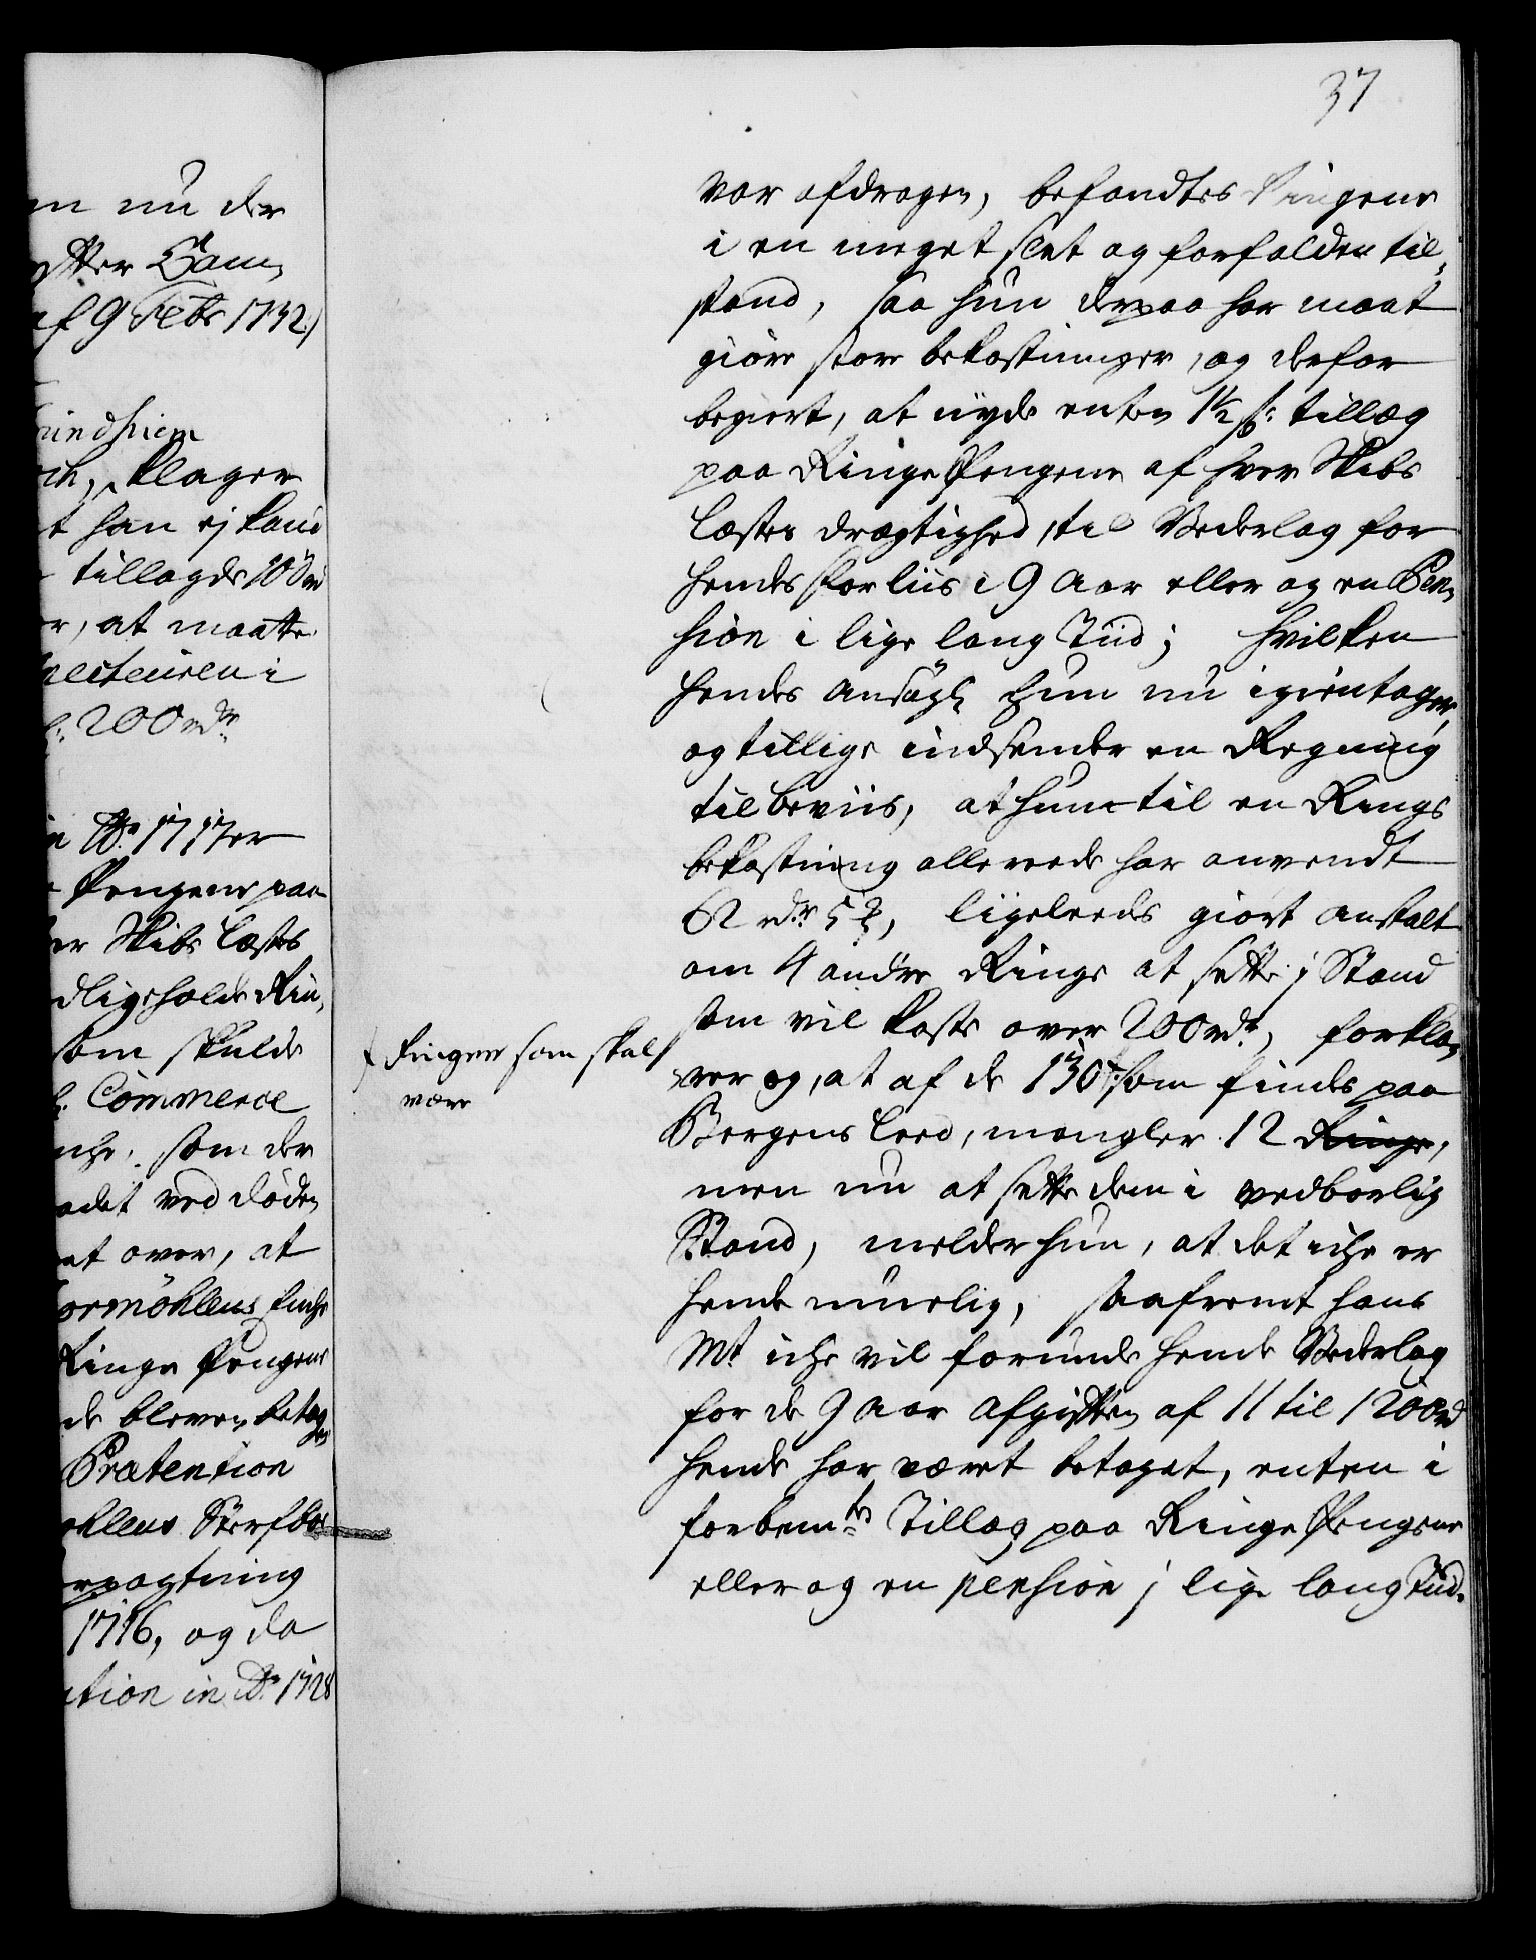 37
n nu der
efter Cam,
af 9 Febr 1732.)
rindhiem
ch, klager
t han ej kand
tillagde 100 rd
r, at maatte
pecteuren i
200 rdr
Ao 1717 er
Pengene paa
er Skibs Læstes
dligeholde Rin,
som skulde
Commerce
nche, som der
adet ved Döden
at over, at
ormöhlens Enche
Ringe Pengene
de bleven betag
en
Prætention
öhlens Sterfboe
rpagtning
1716, og da
ation in Ao 1728
var afdragen, befandtes Ringene
i en meget slet og forfalden til,
stand, saa hun derpaa har maat
giöre store bekostninger, og derfor
begiert, at nyde enten 1½ s: tillæg
paa Ringe Pengene af hver Skibs
Læstes drægtighed, til Vederlag for
hendes Forliis i 9 Aar eller og en Pen,
sion i lige lang Tiid; hvilken
hendes Ansögn hun nu igientager,
og tillige indsender en Regning
til beviis, at hun til en Rings
bekostning allereede har anvendt
62 rdr 5 , ligeleeds giort anstalt
om 4 andre Ringe at sette i Stand
som vil koste over 200 rdr, forkla,
† Ringer som skal
være
rer og, at af de 130 † som findes paa
Bergens Leed, mangler 12 Ringe,
men nu at sette dem i vedbørlig
Stand, melder hun, at det iche er
hende muelig, saafremt hans
Mt iche vil forunde hende Vederlag
for de 9 Aar Afgiften af 11 til 1200 rd
hende har været betaget, enten i
forbemte Tillæg paa Ringe Pengene
eller og en pension i lige lang Tiid.